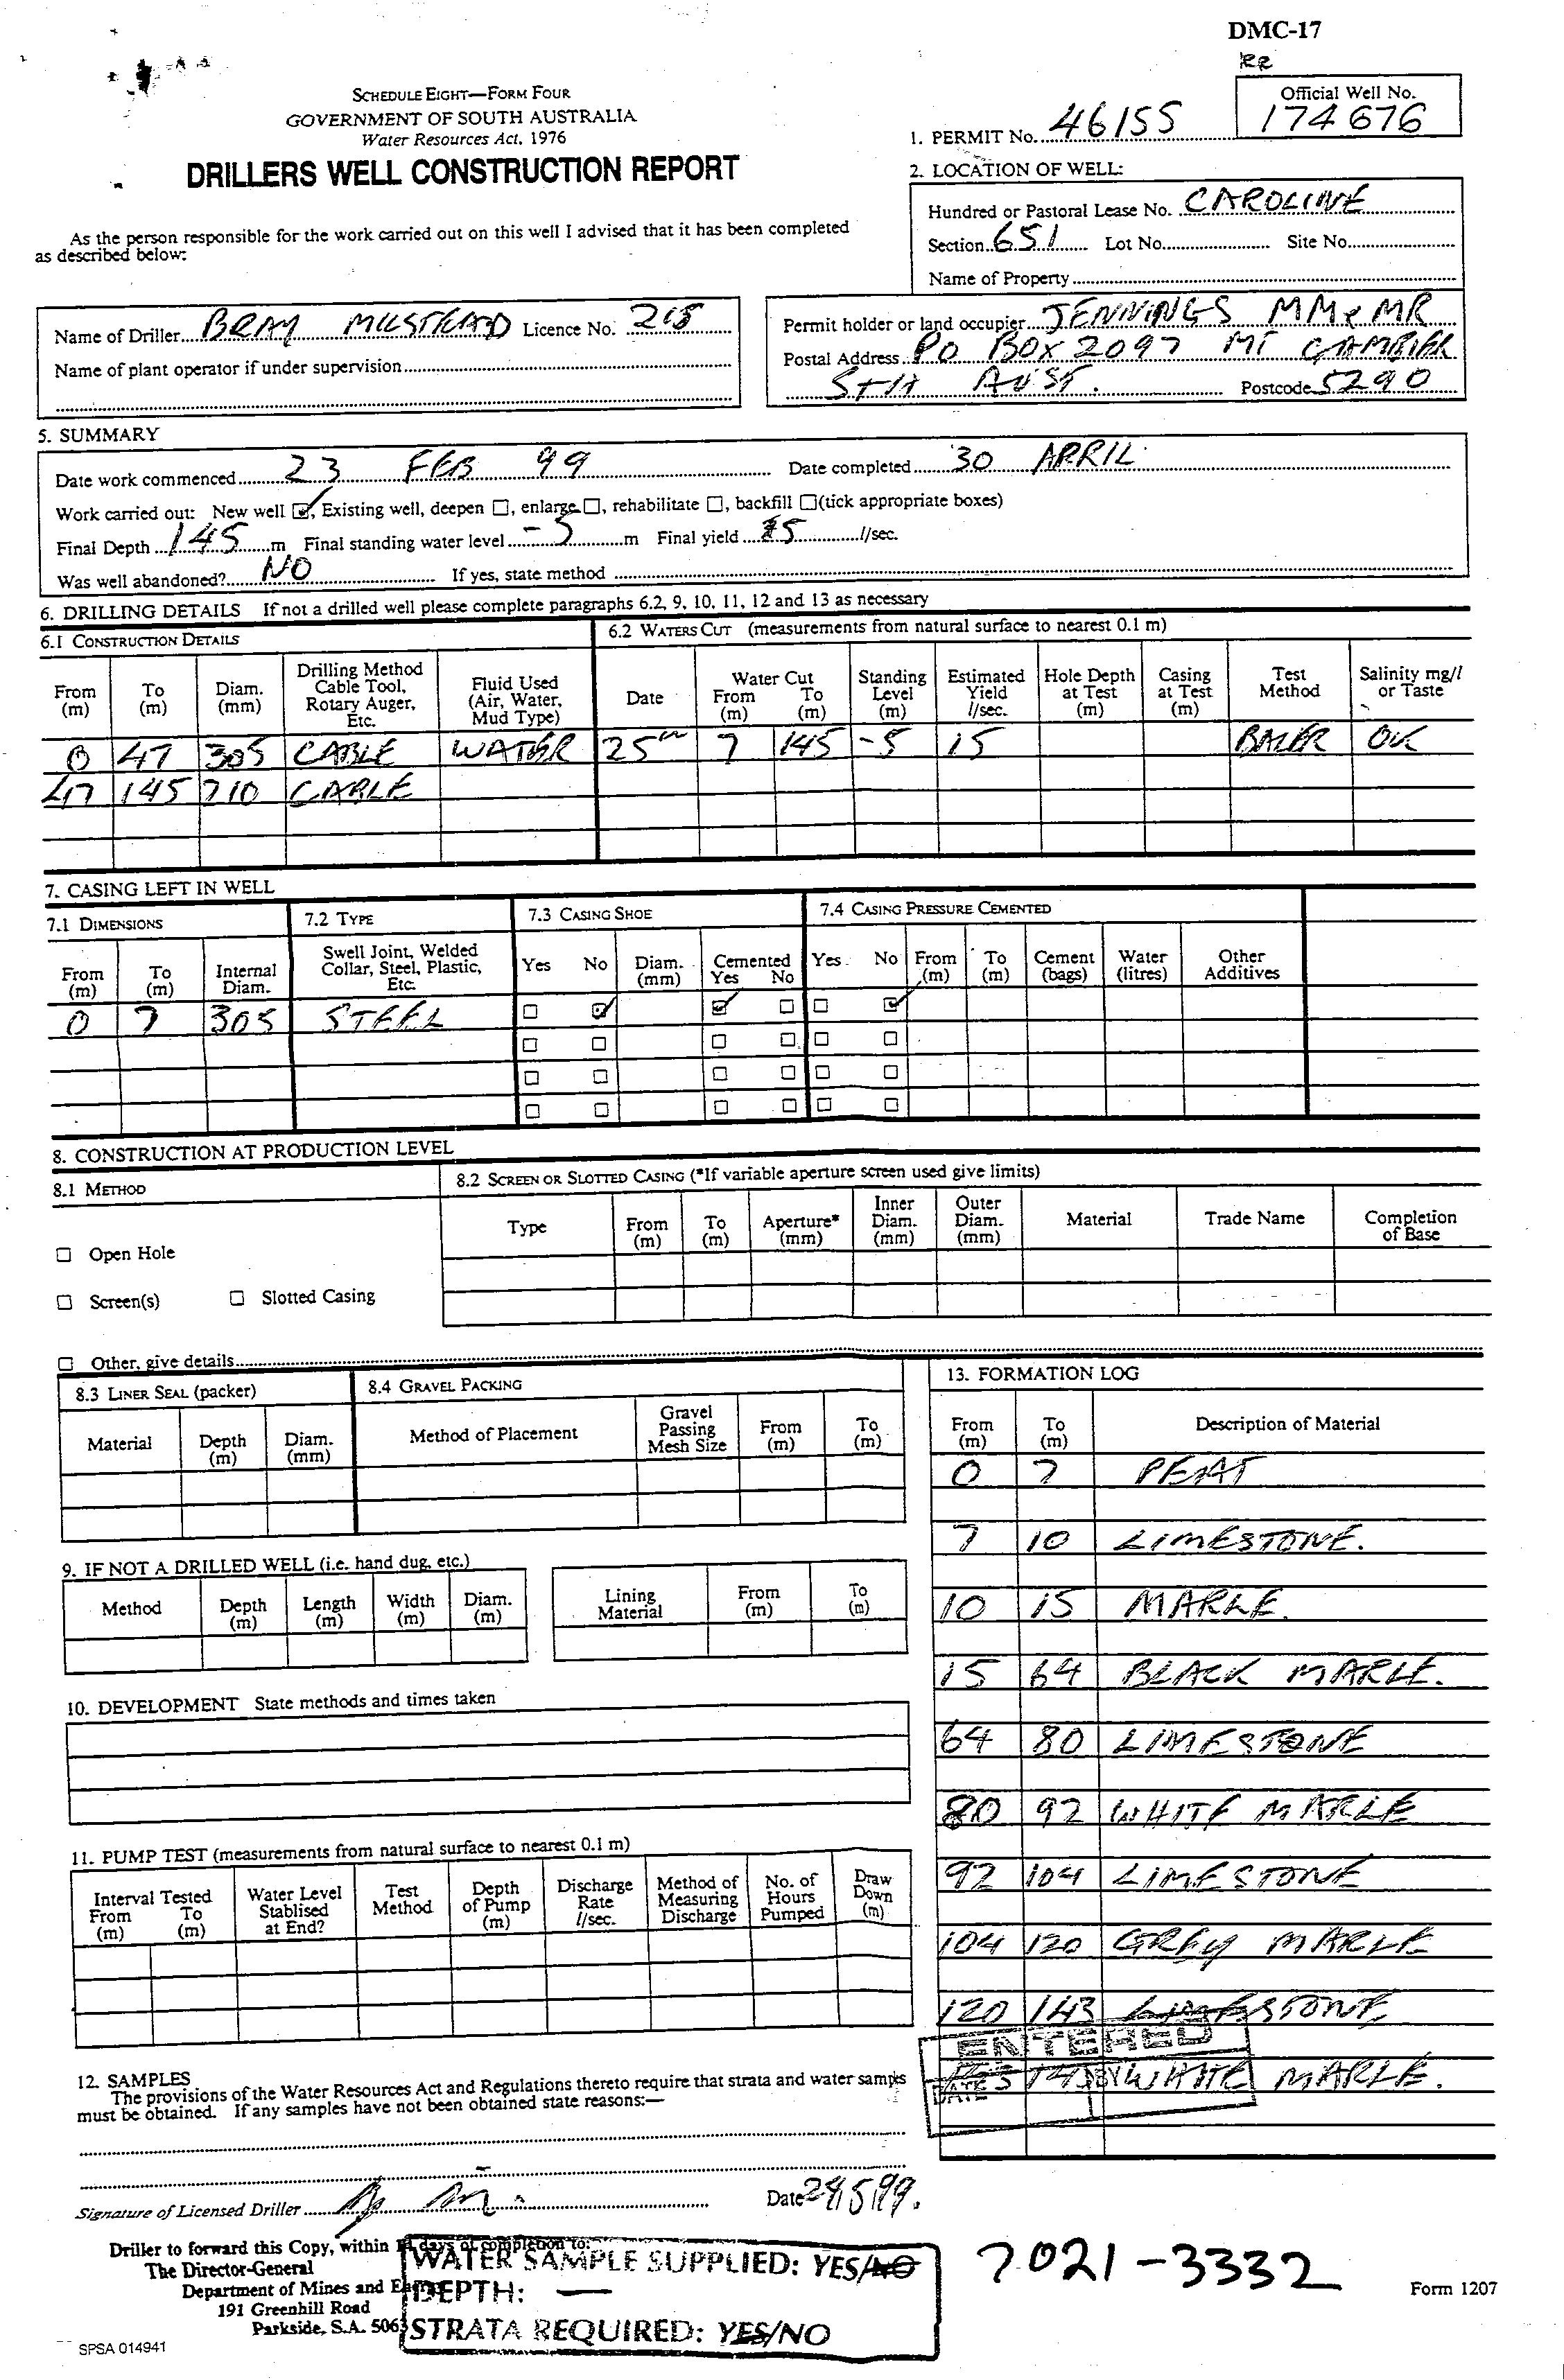 DMC-17
RR
SCHEDULE EIGHT—FORM FOUR
GOVERNMENT OF SOUTH AUSTRALIA
Water Resources Act, 1976
DRILLERS WELL CONSTRUCTION REPORT
As the person responsible for the work carried out on this well I advised that it has been completed
as described below:
1. PERMIT No. 46155
Official Well No.
174676
2. LOCATION OF WELL:
Hundred or Pastoral Lease No. CAROLINE
Section 651 Lot No. Site No.
Name of Property
Name of Driller BRAY MUSTEAD Licence No. 218
Name of plant operator if under supervision
Permit holder or land occupier JENNINGS MM & MR
Postal Address PO BOX 2097 MT GAMBIER
STH AUST. Postcode 5290
5. SUMMARY
Date work commenced 23 FEB 99 Date completed 30 APRIL
Work carried out: New well ☑, Existing well, deepen ☐, enlarge ☐, rehabilitate ☐, backfill ☐ (tick appropriate boxes)
Final Depth 145 m Final standing water level -5 m Final yield 15 l/sec.
Was well abandoned? NO If yes, state method
6. DRILLING DETAILS If not a drilled well please complete paragraphs 6.2, 9, 10, 11, 12 and 13 as necessary
6.1 CONSTRUCTION DETAILS
6.2 WATERS CUT (measurements from natural surface to nearest 0.1 m)
From (m) To (m) Diam. (mm) Drilling Method Cable Tool, Rotary Auger, Etc. Fluid Used (Air, Water, Mud Type) Date Water Cut From (m) To (m) Standing Level (m) Estimated Yield l/sec. Hole Depth at Test (m) Casing at Test (m) Test Method Salinity mg/l or Taste
0 47 305 CABLE WATER 25th 7 145 -5 15 BALER OK
47 145 210 CABLE
7. CASING LEFT IN WELL
7.1 DIMENSIONS 7.2 TYPE 7.3 CASING SHOE 7.4 CASING PRESSURE CEMENTED
From (m) To (m) Internal Diam. Swell Joint, Welded Collar, Steel, Plastic, Etc. Yes No Diam. (mm) Cemented Yes No Yes No From (m) To (m) Cement (bags) Water (litres) Other Additives
0 7 305 STEEL ☐ ☑ ☑ ☐ ☐ ☑
8. CONSTRUCTION AT PRODUCTION LEVEL
8.1 METHOD
8.2 SCREEN OR SLOTTED CASING (*If variable aperture screen used give limits)
Type From (m) To (m) Aperture* (mm) Inner Diam. (mm) Outer Diam. (mm) Material Trade Name Completion of Base
☐ Open Hole
☐ Screen(s) ☐ Slotted Casing
☐ Other, give details
8.3 LINER SEAL (packer) 8.4 GRAVEL PACKING
Material Depth (m) Diam. (mm) Method of Placement Gravel Passing Mesh Size From (m) To (m)
9. IF NOT A DRILLED WELL (i.e. hand dug, etc.)
Method Depth (m) Length (m) Width (m) Diam. (m) Lining Material From (m) To (m)
10. DEVELOPMENT State methods and times taken
11. PUMP TEST (measurements from natural surface to nearest 0.1 m)
Interval Tested From (m) To (m) Water Level Stablised at End? Test Method Depth of Pump (m) Discharge Rate l/sec. Method of Measuring Discharge No. of Hours Pumped Draw Down (m)
12. SAMPLES
The provisions of the Water Resources Act and Regulations thereto require that strata and water samples
must be obtained. If any samples have not been obtained state reasons:—
13. FORMATION LOG
From (m) To (m) Description of Material
0 7 PEAT
7 10 LIMESTONE.
10 15 MARLE.
15 64 BLACK MARLE.
64 80 LIMESTONE
80 92 WHITE MARLE
92 104 LIMESTONE
104 120 GREY MARLE
120 143 LIMESTONE,
WHITE MARLE.
ENTERED
DATE BY
Signature of Licensed Driller Date 24/5/99.
Driller to forward this Copy, within 14 days of completion to:
The Director-General
Department of Mines and
191 Greenhill Road
Parkside, S.A. 5063
SPSA 014941
WATER SAMPLE SUPPLIED: YES/NO
DEPTH: —
STRATA REQUIRED: YES/NO
7021-3332
Form 1207